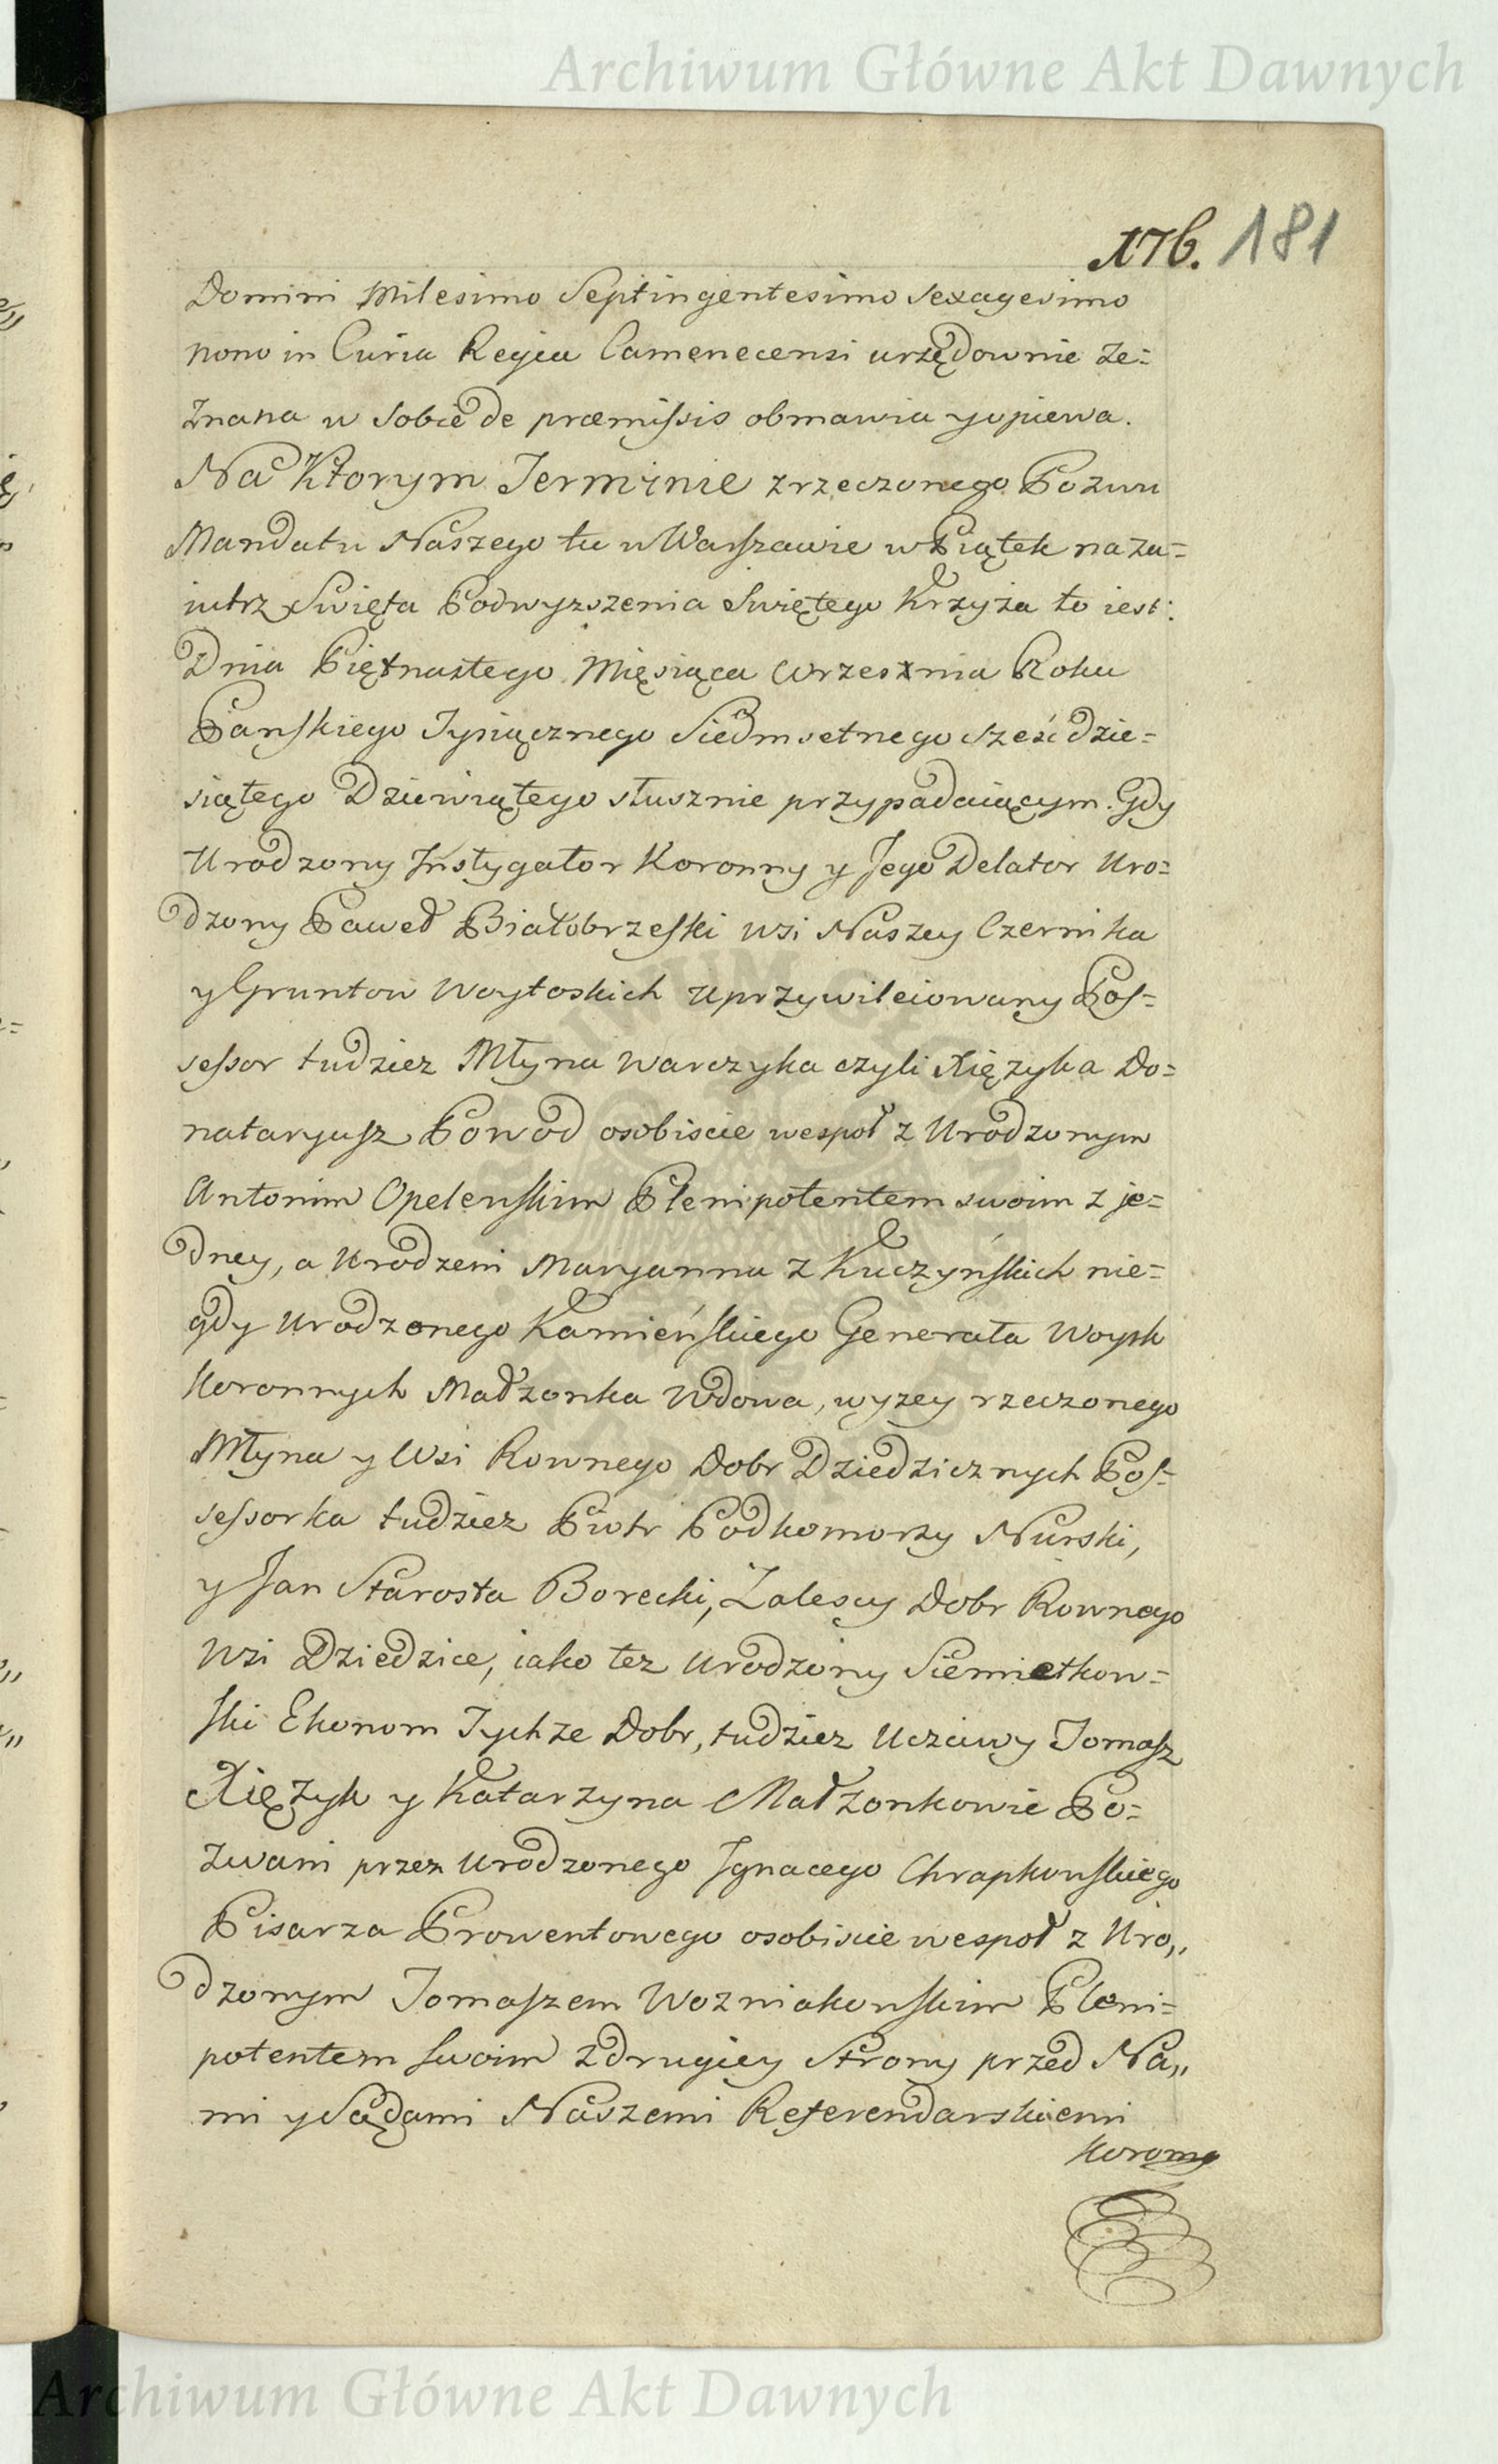 Archiwum Główne Akt Dawnych
176. 181
Domini Milesimo Septingentesimo Sexagesimo
nono in Curia Regia Camenecensi urzędownie ze=
znana w sobie de præmissis obmawia y opiewa.
Na Ktorym Terminie z rzeczonego Pozwu
Mandatu Naszego tu w Warszawie w Piątek naza=
iutrz Swięta Podwyzszenia Swiętego Krzyża to iest:
Dnia Piętnastego Miesiąca Wrzesznia Roku
Panskiego Tysiącznego Siedmsetnego sześćdzie=
siątego Dziewiątego słusznie przypadaiącym. Gdy
Urodzony Instygator Koronny y Jego Delator Uro=
dzony Paweł Białobrzeski wsi Naszey Czernika
y Gruntow Woytoskich uprzywileiowany Pos=
sessor tudziez Młyna Warczyka czyli Xięzyka Do=
nataryusz Powod osobiscie wespoł z Urodzonym
Antonim Opelenskim Plenipotentem swoim z je=
dney, a Urodzeni Maryanna z Kuczyńskich nie=
gdy Urodzonego Kamieńskiego Generała Woysk
Koronnych Małzonka Wdowa, wyzey rzeczonego
Młyna y Wsi Rownego Dobr Dziedzicznych Pos=
sessorka tudziez Piotr Podkomorzy Nurski,
y Jan Starosta Borecki, Zalescy Dobr Rownego
Wsi Dziedzice, iako tez Urodzony Siemietkow=
ski Ekonom Tychze Dobr, tudziez Uczciwy Tomasz
Xięzyk y Katarzyna Małzonkowie Po=
zwani przez Urodzonego Ignacego Chrapkowskiego
Pisarza Prowentowego osobiscie wespoł z Uro„
dzonym Tomaszem Wozniakowskim Pleni=
potentem swoim z drugiey Strony przed Na„
mi y Sądami Naszemi Referendarskiemi
Koronny
Archiwum Główne Akt Dawnych